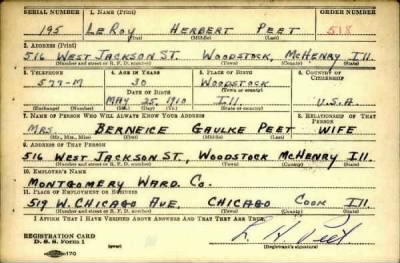 SERIAL NUMBER 1. NAME (Print) ORDER NUMBER
195 LeRoy Herbert Peet 518
(First) (Middle) (Last)
2. ADDRESS (Print)
516 West Jackson St. Woodstock, McHenry Ill.
(Number and street or R. F. D. number) (Town) (County) (State)
3. TELEPHONE 4. AGE IN YEARS 5. PLACE OF BIRTH 6. COUNTRY OF CITIZENSHIP
577-M 30 Woodstock
(Town or county)
DATE OF BIRTH
May 25, 1910 Ill. U.S.A.
(Exchange) (Number) (Mo.) (Day) (Yr.) (State or country)
7. NAME OF PERSON WHO WILL ALWAYS KNOW YOUR ADDRESS 8. RELATIONSHIP OF THAT PERSON
Mrs. Berneice Gaulke Peet Wife
(Mr., Mrs., Miss) (First) (Middle) (Last)
9. ADDRESS OF THAT PERSON
516 West Jackson St., Woodstock McHenry Ill.
(Number and street or R. F. D. number) (Town) (County) (State)
10. EMPLOYER'S NAME
Montgomery Ward. Co.
11. PLACE OF EMPLOYMENT OR BUSINESS
519 W. Chicago Ave, Chicago Cook Ill
(Number and street or R. F. D. number) (Town) (County) (State)
I AFFIRM THAT I HAVE VERIFIED ABOVE ANSWERS AND THAT THEY ARE TRUE.
REGISTRATION CARD
D. S. S. Form 1
L. H. Peet
(Registrant's signature)